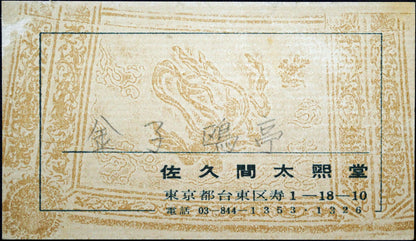 金子鷗亭
佐久間太煕堂
東京都台東区寿1―18―10
電話 03―844―1353・1326